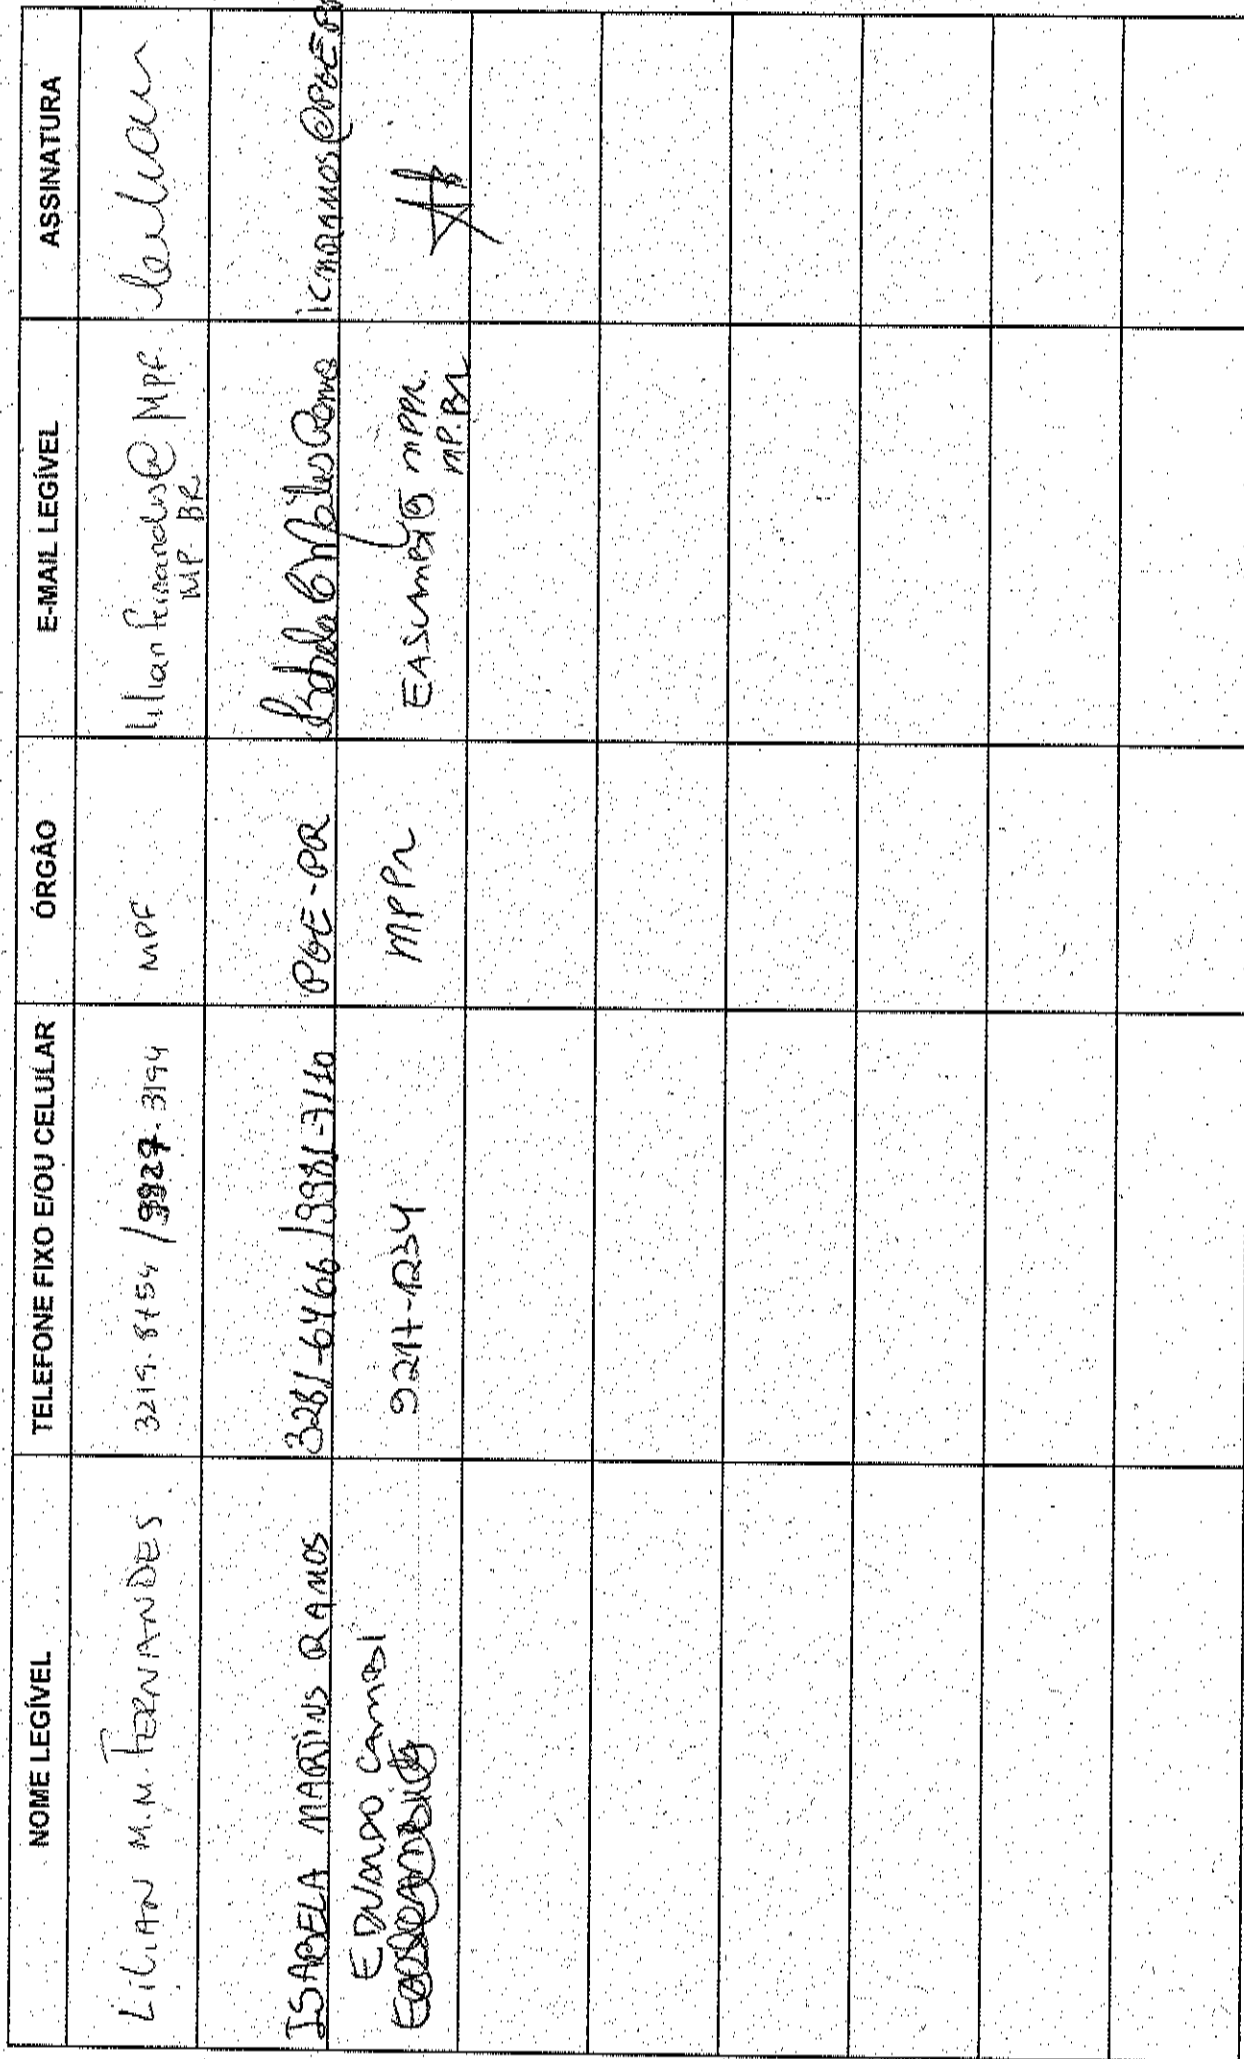 NOME LEGÍVEL TELEFONE FIXO E/OU CELULAR ÓRGÃO E-MAIL LEGÍVEL ASSINATURA
LILIAN M.M. FERNANDES 3219.8754 / 9927.3194 MPF lilianfernandes@MPF.
MP.BR
ISABELA MARTINS RAMOS 3281-6466 / 9981-7110 PGE-PR icmramos@PGE.PR
EDUARDO CAMBI 9217-1234 MPPR EASCAMBI@MPPR.
MP.BR